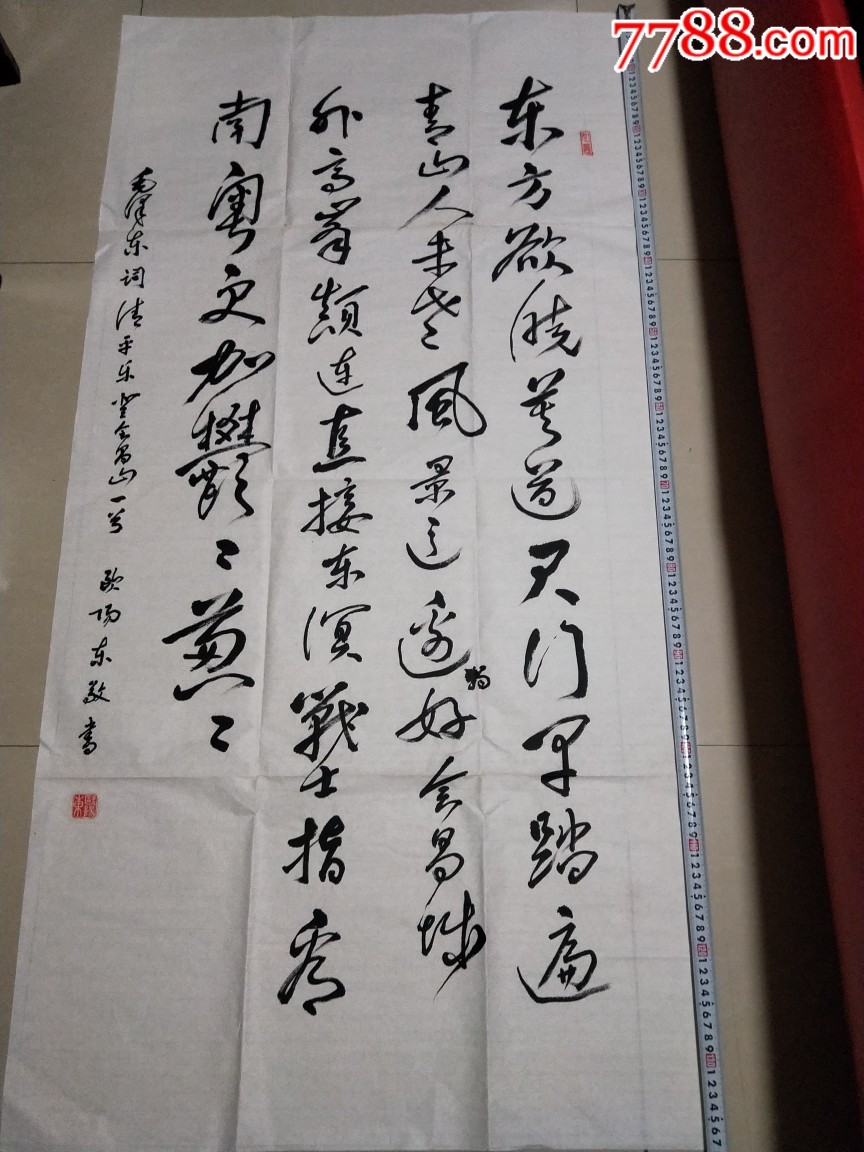 7788.com
东方欲晓莫道君行早踏遍
青山人未老風景这边独好会昌城
外高峯颠连直接东溟戰士指看
南粤更加鬱〻葱〻
毛泽东词清平乐登会昌山一首 欧阳东敬书